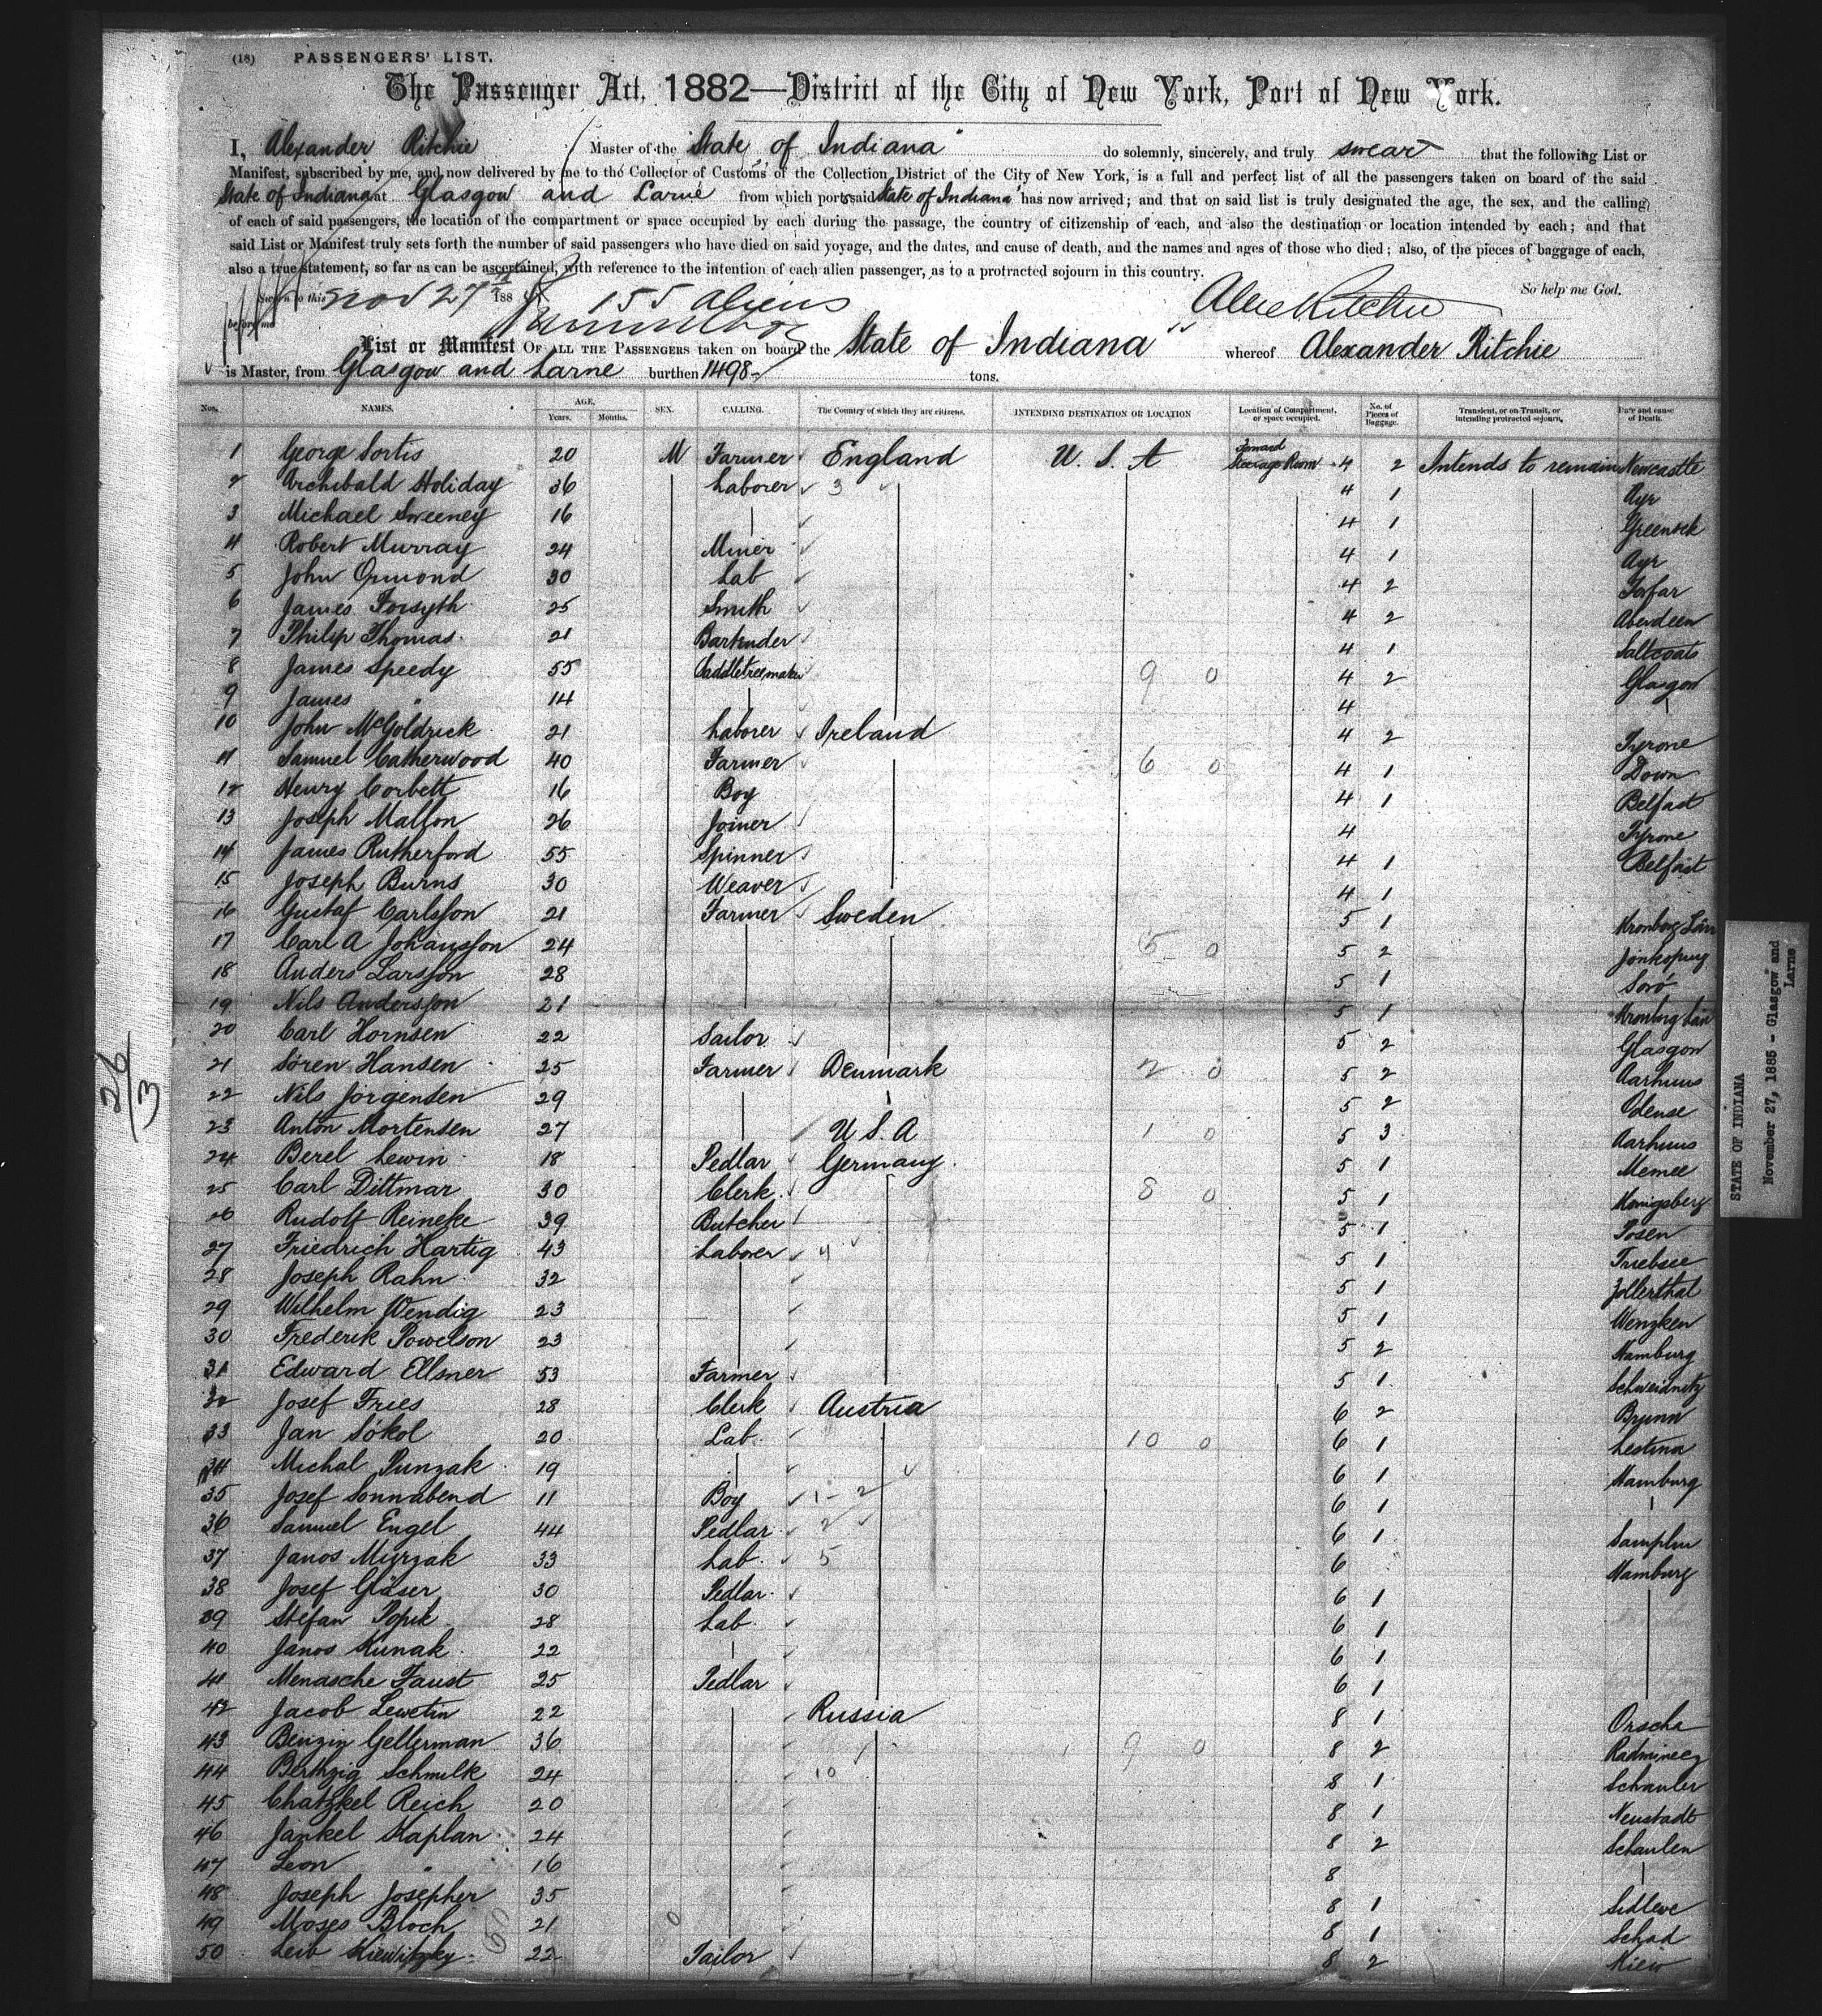 (18) PASSENGERS' LIST.
The Passenger Act, 1882—District of the City of New York, Port of New York.
I, Alexander Ritchie Master of the "State of Indiana" do solemnly, sincerely, and truly swear that the following List or
Manifest, subscribed by me, and now delivered by me to the Collector of Customs of the Collection District of the City of New York, is a full and perfect list of all the passengers taken on board of the said
State of Indiana at Glasgow and Larne from which port said "State of Indiana" has now arrived; and that on said list is truly designated the age, the sex, and the calling
of each of said passengers, the location of the compartment or space occupied by each during the passage, the country of citizenship of each, and also the destination or location intended by each; and that
said List or Manifest truly sets forth the number of said passengers who have died on said voyage, and the dates, and cause of death, and the names and ages of those who died; also, of the pieces of baggage of each,
also a true statement, so far as can be ascertained, with reference to the intention of each alien passenger, as to a protracted sojourn in this country.
So help me God.
Sworn to this Nov 27 188 155 aliens Alex Ritchie
before me
List or Manifest OF ALL THE PASSENGERS taken on board the State of Indiana" whereof Alexander Ritchie
is Master, from Glasgow and Larne burthen 1498 tons.
Nos. NAMES. AGE. Years. Months. SEX. CALLING. The Country of which they are citizens. INTENDING DESTINATION OR LOCATION Location of Compartment, or space occupied. No. of Pieces of Baggage. Transient, or on Transit, or intending protracted sojourn. Date and cause of Death.
1 George Sortis 20 M Farmer England U. S. A Forward Steerage Room 4 2 Intends to remain Newcastle
2 Archibald Holiday 36 Laborer 3 4 1 Ayr
3 Michael Sweeney 16 4 1 Greenock
4 Robert Murray 24 Miner 4 1 Ayr
5 John Ormond 30 Lab 4 2 Forfar
6 James Forsyth 25 Smith 4 2 Aberdeen
7 Philip Thomas 21 Bartender 4 1 Saltcoats
8 James Speedy 55 Saddletreemaker 9 0 4 2 Glasgow
9 James " 14 4
10 John McGoldrick 21 Laborer Ireland 4 2 Tyrone
11 Samuel Catherwood 40 Farmer 6 0 4 1 Down
12 Henry Corbett 16 Boy 4 1 Belfast
13 Joseph Mallon 26 Joiner 4 Tyrone
14 James Rutherford 55 Spinner 4 1 Belfast
15 Joseph Burns 30 Weaver 4 1
16 Gustaf Carlsson 21 Farmer Sweden 5 1 Kronborg Län
17 Carl A Johansson 24 5 0 5 2 Jonkoping
18 Anders Larsson 28 5 1 Sorö
19 Nils Andersson 21 5 1 Kronborg Län
20 Carl Hornsen 22 Sailor 5 2 Glasgow
21 Sören Hansen 25 Farmer Denmark 2 0 5 2 Aarhuus
22 Nils Jörgensen 29 5 2 Odense
23 Anton Mortensen 27 U S. A 1 0 5 3 Aarhuus
24 Berel Lewin 18 Pedlar Germany 5 1 Memel
25 Carl Dittmar 30 Clerk 8 0 5 1 Konigsberg
26 Rudolf Reineke 39 Butcher 5 1 Posen
27 Friedrich Hartig 43 Laborer 4 5 1 Triebsee
28 Joseph Rahn 32 5 1 Zollerthal
29 Wilhelm Wendig 23 5 1 Wenzken
30 Frederik Powelson 23 5 2 Hamburg
31 Edward Ellsner 53 Farmer 5 1 Schweidnitz
32 Josef Fries 28 Clerk Austria 6 2 Brunn
33 Jan Sókol 20 Lab 10 0 6 1 Lestina
34 Michal Punzak 19 6 1 Hamburg
35 Josef Sonnabend 11 Boy 1-2 6 1
36 Samuel Engel 44 Pedlar 2 6 1 Samplin
37 Janos Mirzak 33 Lab. 5 6 Hamburg
38 Josef Gläser 30 Pedlar 6 1
39 Stefan Popik 28 Lab 6 1
40 Janos Kunak 22 6 1
41 Menasche Faust 25 Pedlar 6 1
42 Jacob Lewetin 22 Russia 8 1 Orscha
43 Gellerman 36 9 0 8 2
44 Schmilk 24 10 8 1 Schauler
45 Chatzkel Reich 20 8 1 Neustadt
46 Jankel Kaplan 24 8 2 Schaulen
47 Leon " 16 8
48 Joseph Josepher 35 8 1 Sidleve
49 Moses Bloch 21 8 1 Schad
50 Leib Kiewitzky 22 Tailor 8 2 Kiew
26/3
STATE OF INDIANA
November 27, 1885 - Glasgow and Larne